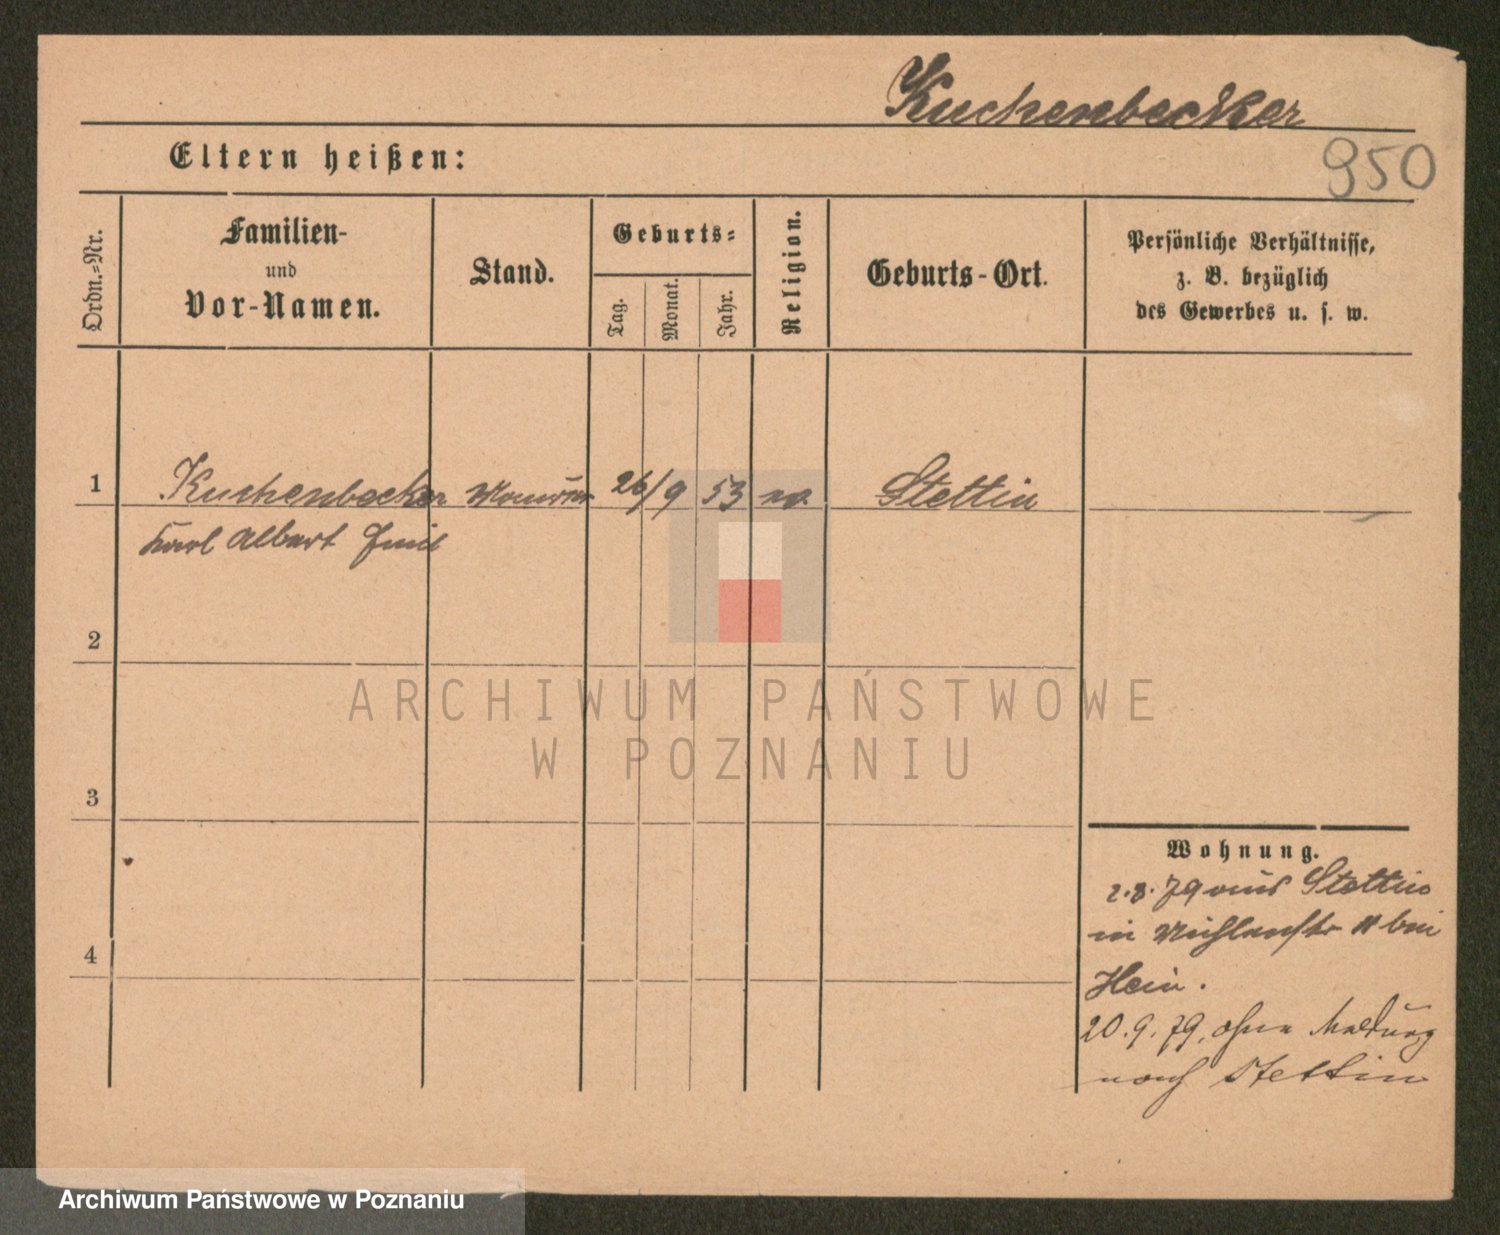 Kuchenbecker
950
Eltern heißen:
Ordn.-Nr.
Familien-
und
Vor-Namen.
Stand.
Geburts-
Tag.
Monat.
Jahr.
Religion.
Geburts-Ort.
Persönliche Verhältnisse,
z. B. bezüglich
des Gewerbes u. s. w.
1 Kuchenbecker 26/9 53 Stettin
Karl Albert Emil
2
3
4
ARCHIWUM PAŃSTWOWE
W POZNANIU
Wohnung.
2.8.79 aus Stettin
in Mühlenstr 11 bei
Hein.
20.9.79. ohne Meldung
nach Stettin
Archiwum Państwowe w Poznaniu